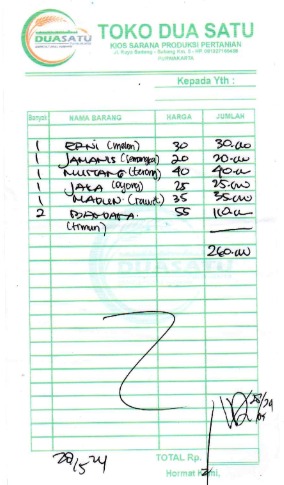 DUASATU
TOKO DUA SATU
KIOS SARANA PRODUKSI PERTANIAN
PURWAKARTA
Kepada Yth :
Banyak NAMA BARANG HARGA JUMLAH
1 RANI (melon) 30 30.000
1 (semangka) 20 20.000
1 MUSTANG (terong) 40 40.000
1 JAKA (oyong) 25 25.000
1 (rawit) 35 35.000
2 BANDANA 55 110.000
(timun)
260.000
DUASATU
28/5 24
TOTAL Rp.
Hormat Kami,